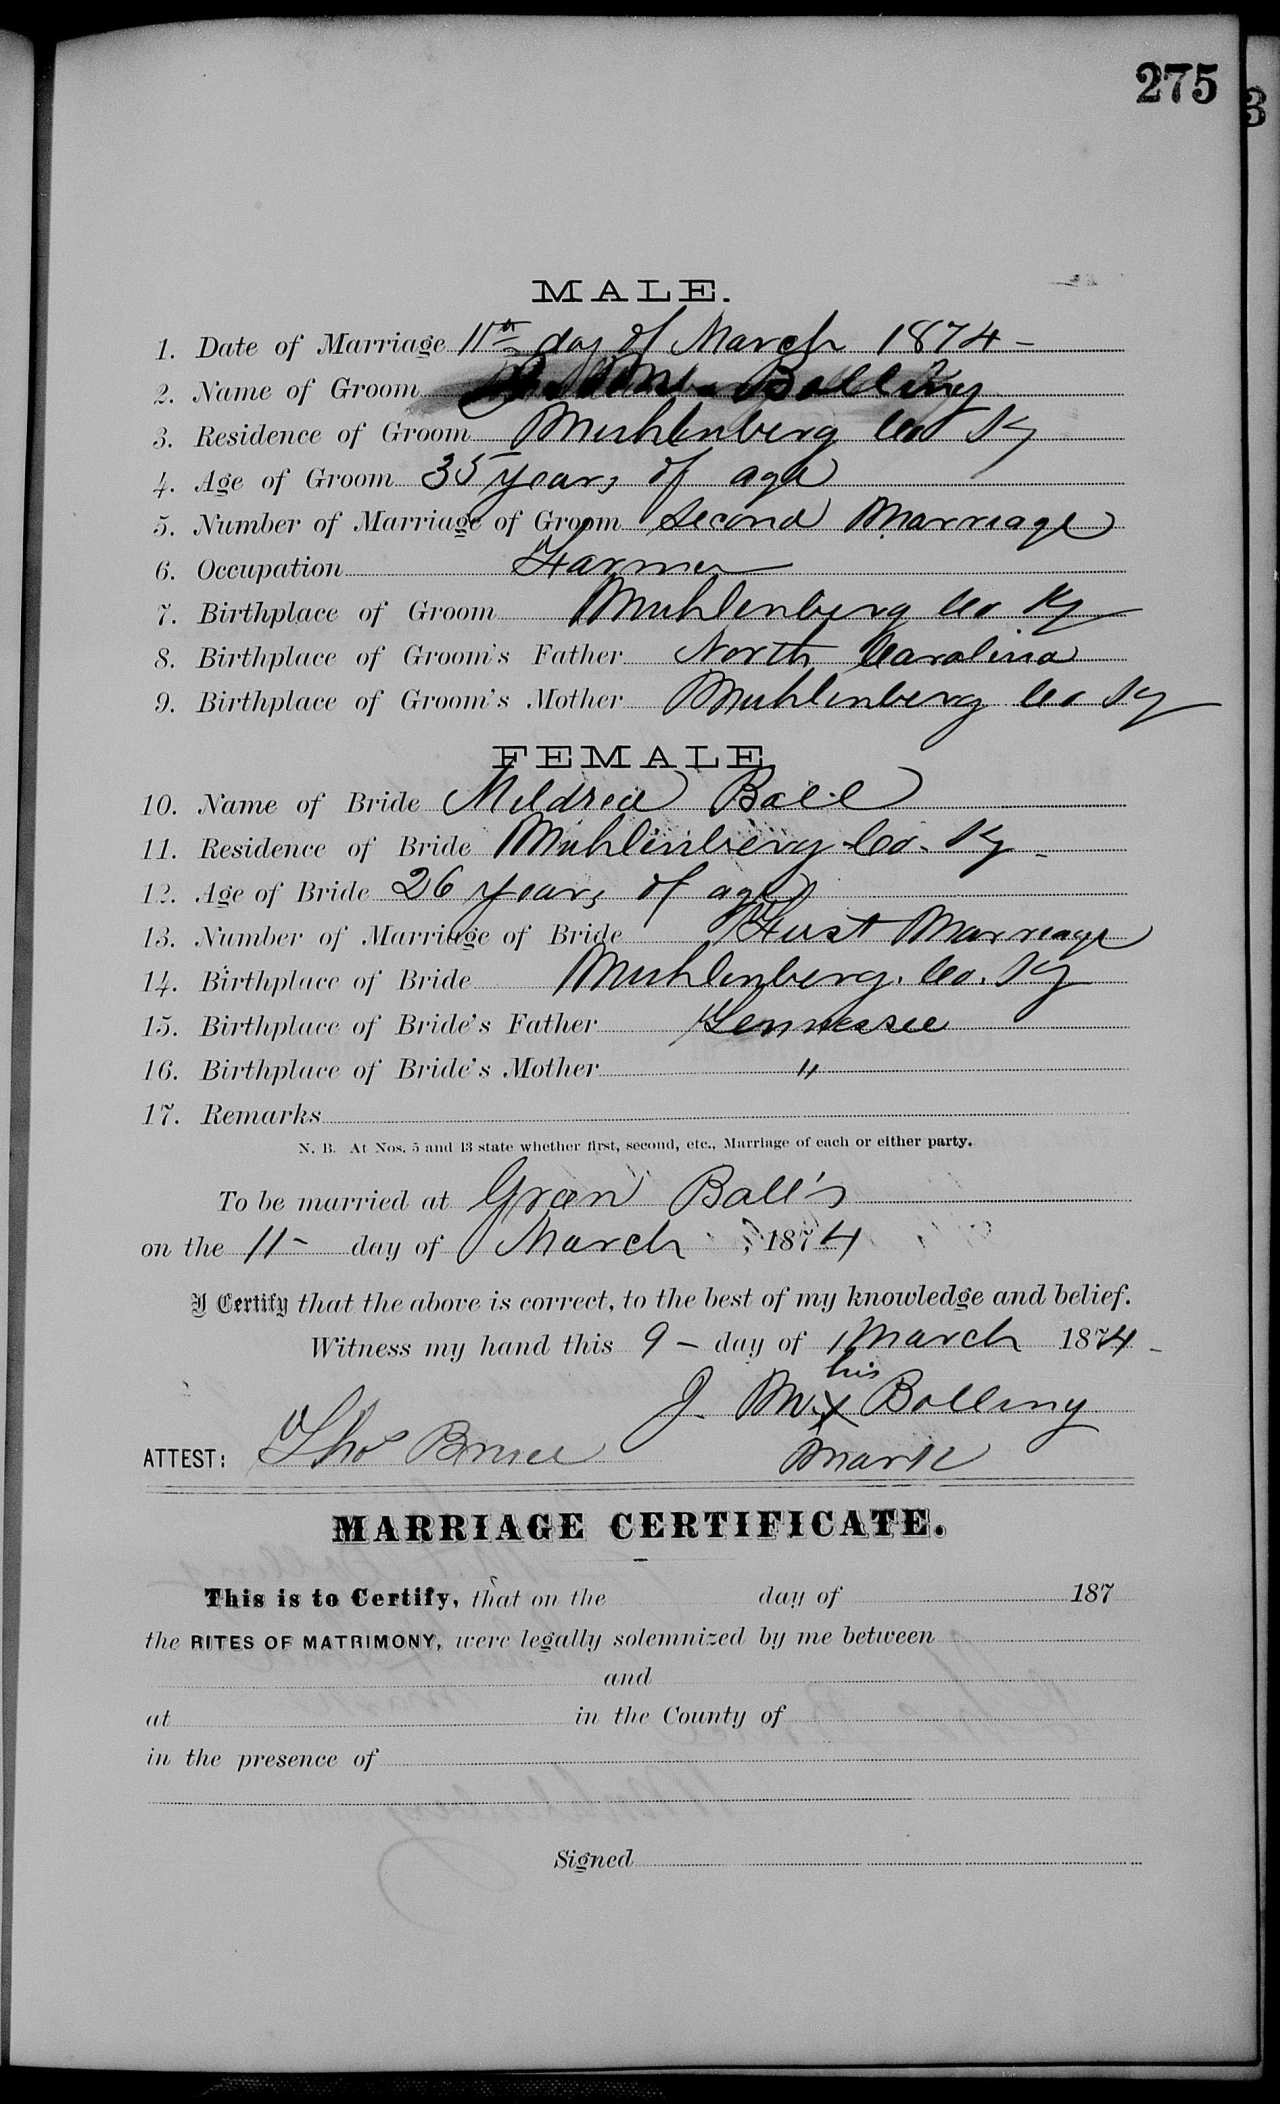 275
MALE.
1. Date of Marriage 11th day of March 1874 -
2. Name of Groom Bolling
3. Residence of Groom Muhlenberg Co Ky
4. Age of Groom 35 years of age
5. Number of Marriage of Groom Second Marriage
6. Occupation Farmer
7. Birthplace of Groom Muhlenberg Co Ky
8. Birthplace of Groom's Father North Carolina
9. Birthplace of Groom's Mother Muhlenberg Co Ky
FEMALE.
10. Name of Bride Mildred Ball
11. Residence of Bride Muhlenberg Co. Ky -
12. Age of Bride 26 years of age
13. Number of Marriage of Bride First Marriage
14. Birthplace of Bride Muhlenberg. Co. Ky
15. Birthplace of Bride's Father Tennessee
16. Birthplace of Bride's Mother "
17. Remarks
N. B. At Nos. 5 and 13 state whether first, second, etc., Marriage of each or either party.
To be married at Green Ball's
on the 11 - day of March, 1874
I Certify that the above is correct, to the best of my knowledge and belief.
Witness my hand this 9 - day of March 1874 -
his
J. M. X Bolling
ATTEST: Tho Bruce mark
MARRIAGE CERTIFICATE.
This is to Certify, that on the day of 187
the RITES OF MATRIMONY, were legally solemnized by me between
and
at in the County of
in the presence of
Signed